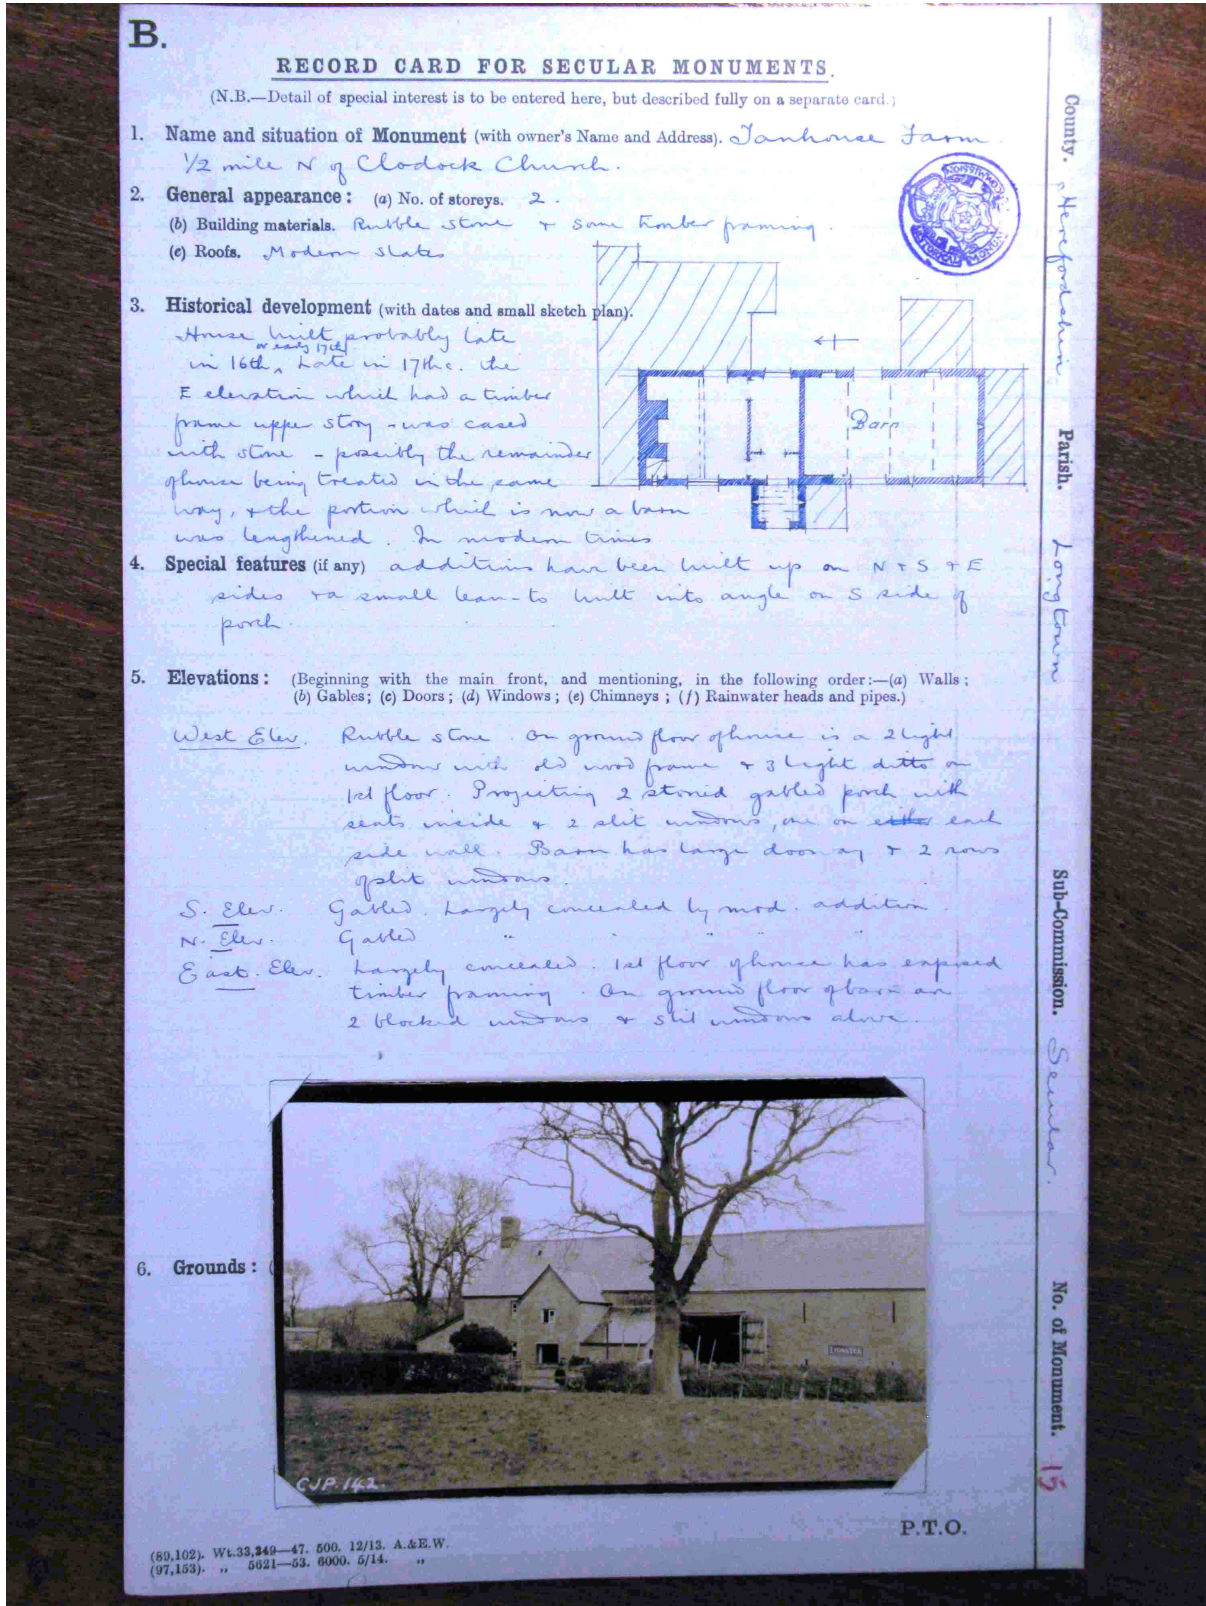 B.
RECORD CARD FOR SECULAR MONUMENTS.
(N.B.—Detail of special interest is to be entered here, but described fully on a separate card.)
1. Name and situation of Monument (with owner's Name and Address). Tanhouse Farm
1/2 mile N of Clodock Church.
2. General appearance: (a) No. of storeys. 2.
(b) Building materials. Rubble stone + some timber framing.
(c) Roofs. Modern slates
3. Historical development (with dates and small sketch plan).
House built probably late
or early 17th
in 16th, Late in 17th c. the
E elevation which had a timber
frame upper story - was cased
with stone - possibly the remainder
of house being treated in the same
way, + the portion which is now a barn
was lengthened. In modern times
Barn
4. Special features (if any) additions have been built up on N + S + E
sides + a small lean-to built into angle on S side of
porch.
5. Elevations: (Beginning with the main front, and mentioning, in the following order:—(a) Walls;
(b) Gables; (c) Doors; (d) Windows; (e) Chimneys; (f) Rainwater heads and pipes.)
West Elev. Rubble stone. On ground floor of house is a 2 light
window with old wood frame + 3 light ditto on
1st floor. Projecting 2 storied gabled porch with
seats inside + 2 slit windows, one on either each
side wall. Barn has large doorway + 2 rows
of slit windows.
S. Elev. Gabled. Largely concealed by mod. addition.
N. Elev. Gabled " " " "
East. Elev. Largely concealed. 1st floor of house has exposed
timber framing. On ground floor of barn are
2 blocked windows + slit windows above.
6. Grounds: (
CJP. 142.
P.T.O.
(89,102). Wt.33,349—47. 500. 12/13. A.&E.W.
(97,153). „ 5621—53. 6000. 5/14. „
County. Herefordshire
Parish. Longtown
Sub-Commission. Secular.
No. of Monument. 15